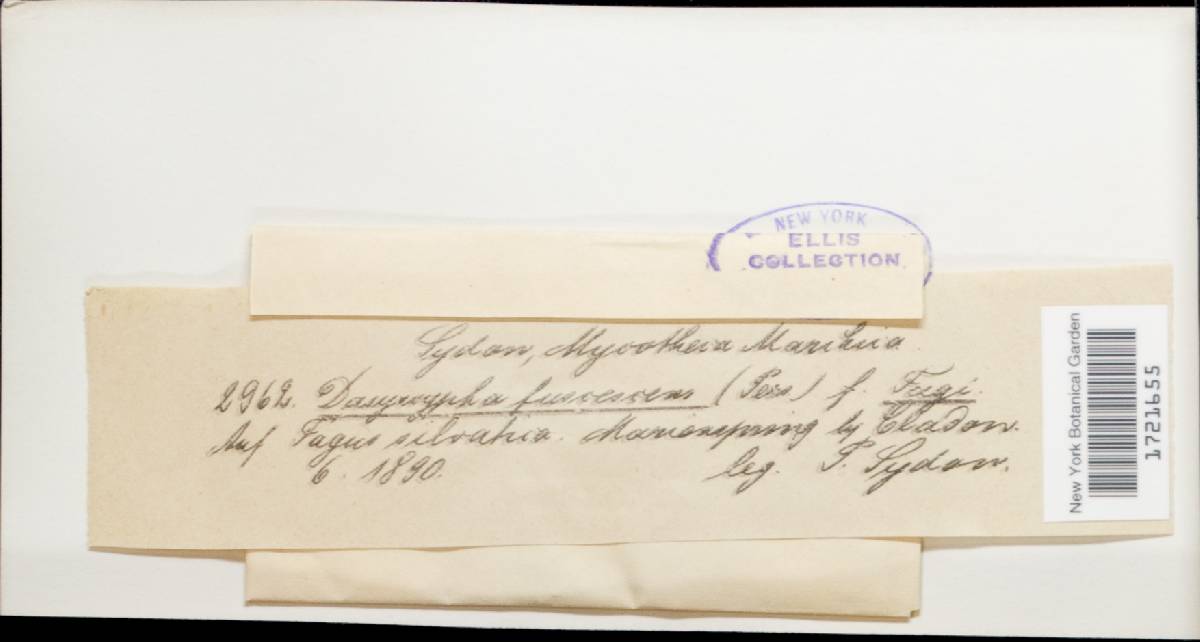 NEW YORK
ELLIS
COLLECTION
Sydow, Mycotheca Marchica
2962. Dasyscypha fuscescens (Pers.) f. Fagi.
Auf Fagus silvatica. bei
6. 1890. leg. P. Sydow.
New York Botanical Garden
1721655